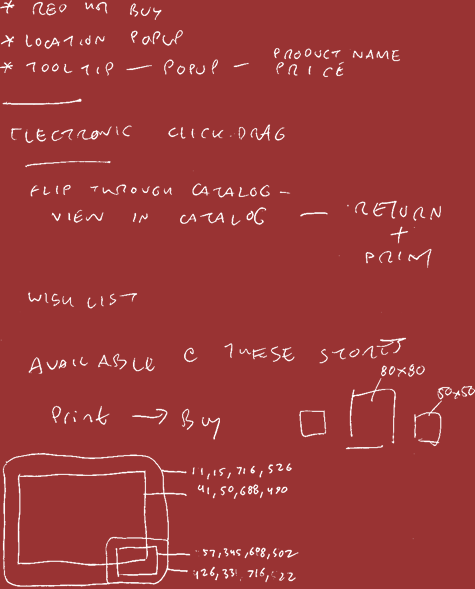 * RED HOT BUY
* LOCATION POPUP
* TOOLTIP — POPUP — PRODUCT NAME
PRICE
ELECTRONIC CLICK.DRAG
FLIP THROUGH CATALOG –
VIEW IN CATALOG — RETURN
+
PRINT
WISH LIST
AVAILABLE @ THESE STORES
80x80
50x50
Print → Buy
11,15,716,526
41,50,688,490
57,345,698,502
426,331,716,522